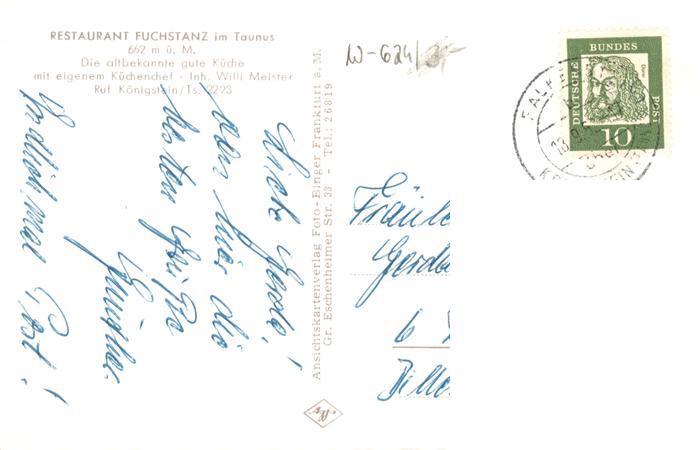 RESTAURANT FUCHSTANZ im Taunus
662 m ü. M.
Die altbekannte gute Küche
mit eigenem Küchenchef - Inh. Willi Meister
Ruf Königstein/Ts. 2223
Liebe Gerda!
von hier die
besten Grüße
Günther
Endlich mal Post!
Ansichtskartenverlag Foto-Binger Frankfurt a. M.
Gr. Eschenheimer Str. 33 - Tel.: 26819
W-624/
Fräule
Gerda
6
DEUTSCHE BUNDES POST
Dürer
10